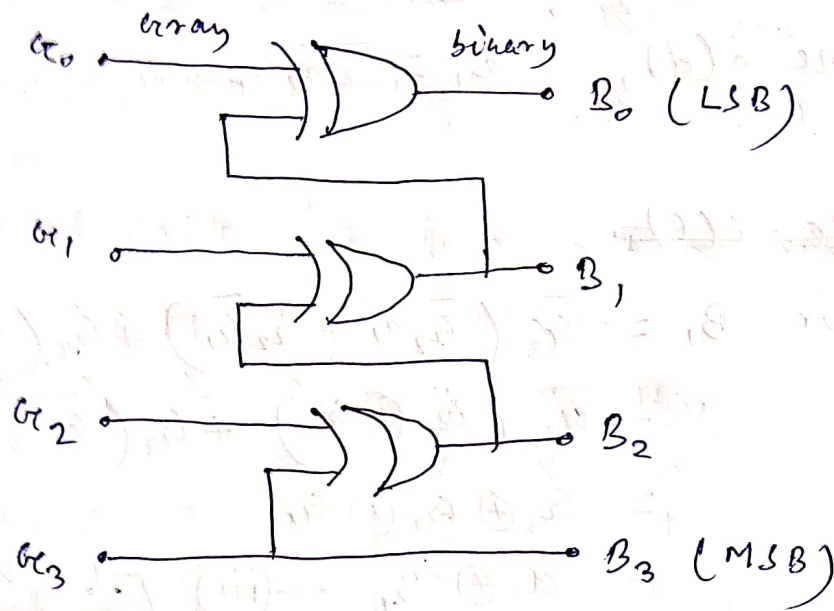 Gray binary
G₀ B₀ (LSB)
G₁ B₁
G₂ B₂
G₃ B₃ (MSB)